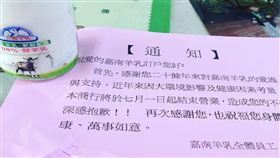 【 通 知 】
親愛的嘉南羊乳訂戶您好:
首先,感謝您二十餘年來對嘉南羊乳的愛護
與支持,近年來因大環境影響及健康因素考量
本商行將於七月一日起結束營業,造成您的不
深感抱歉!! 再次感謝您,也祝福您身體
康、萬事如意。
嘉南羊乳全體員工
鮮羊乳